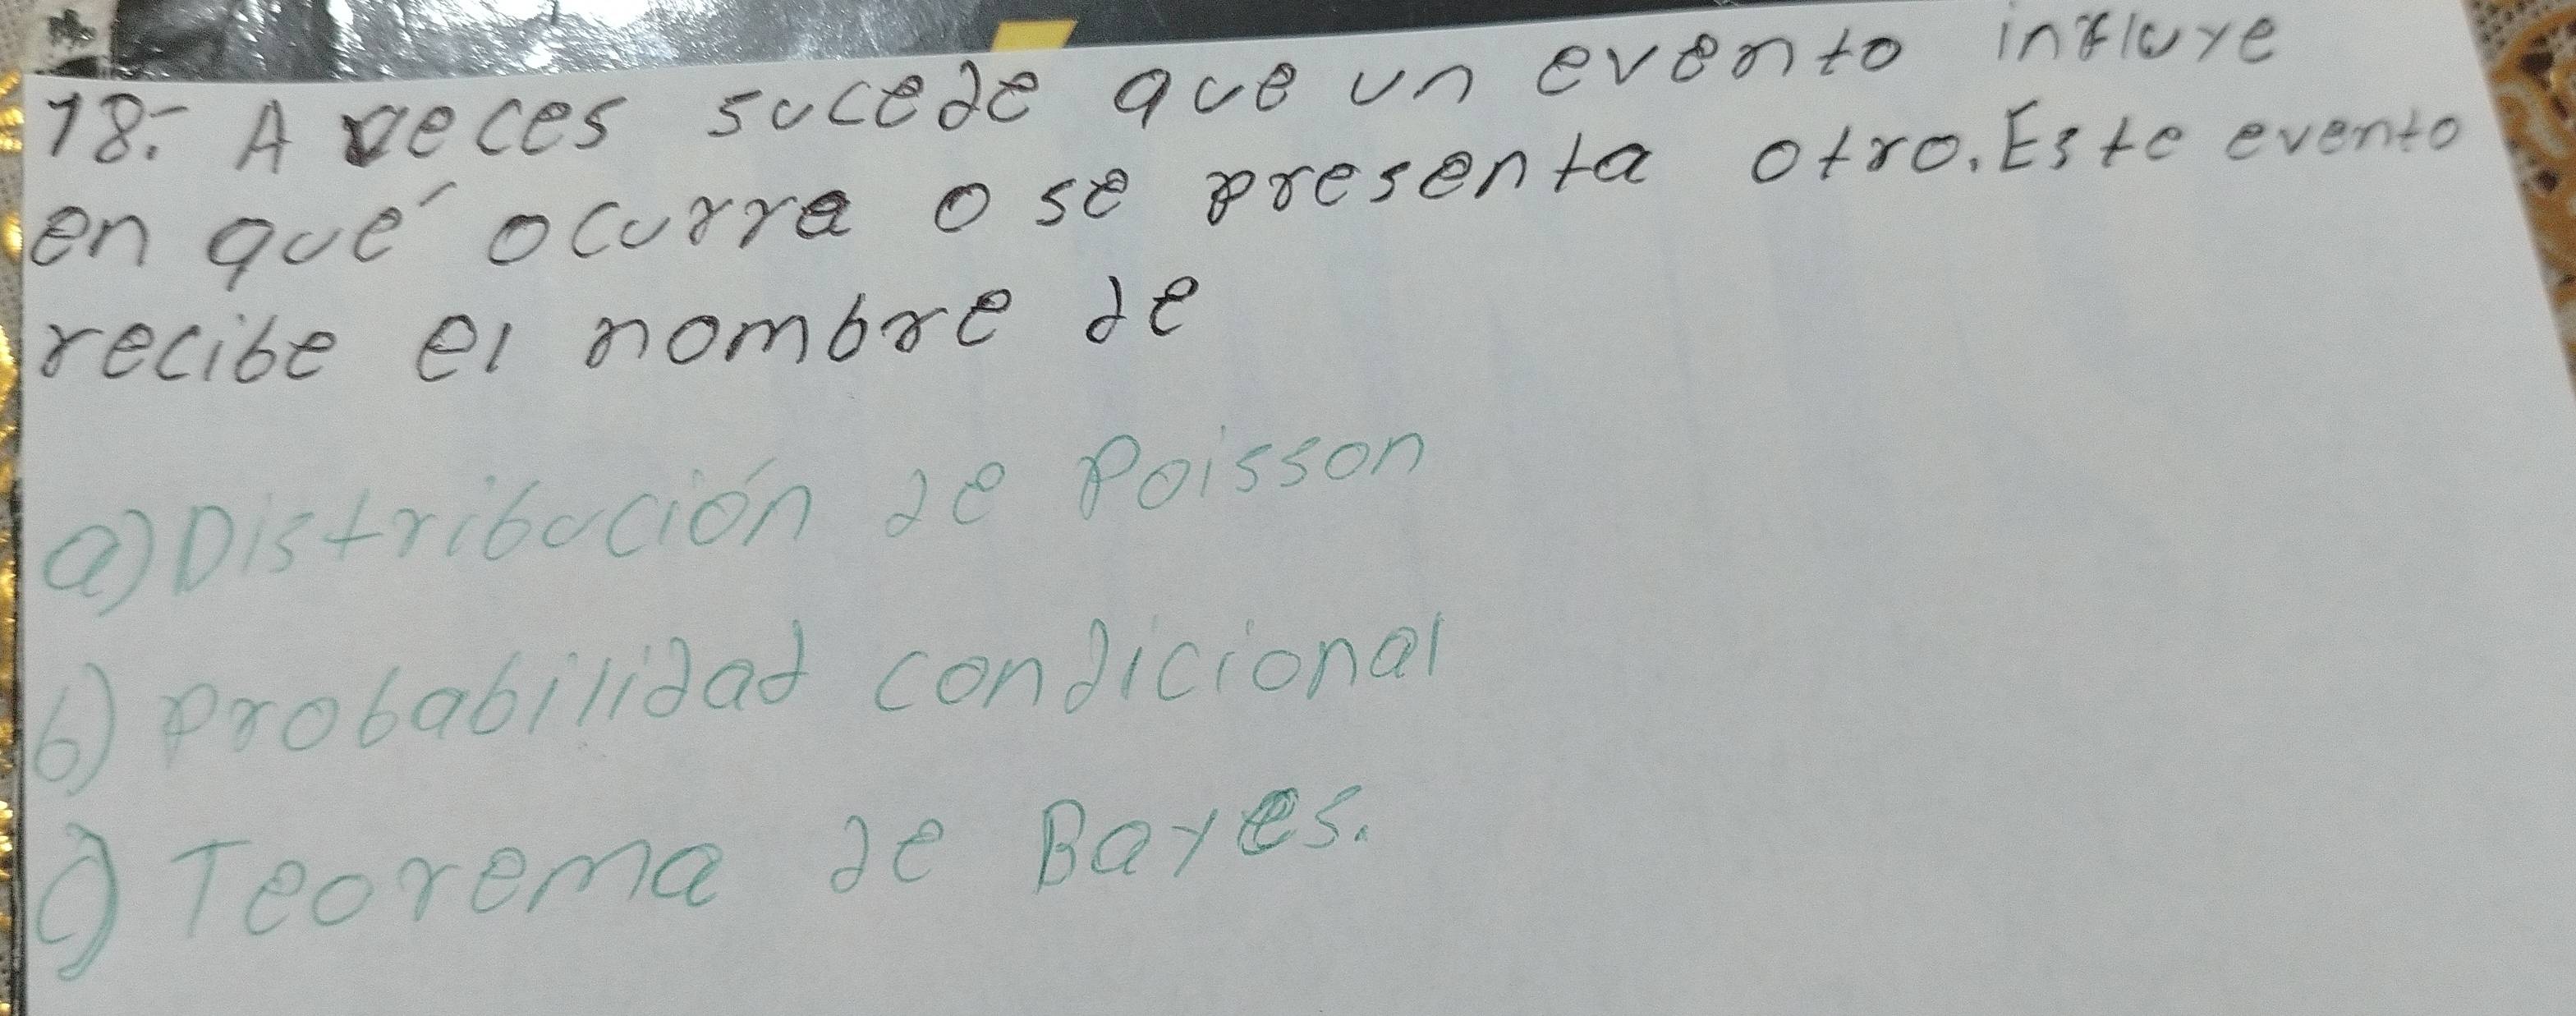 18.- A veces sucede que un evento influye
en qué ocurra o se presenta otro. Este evento
recibe el nombre de
a) Distribución de Poisson
b) Probabilidad condicional
c) Teorema de Bayes.